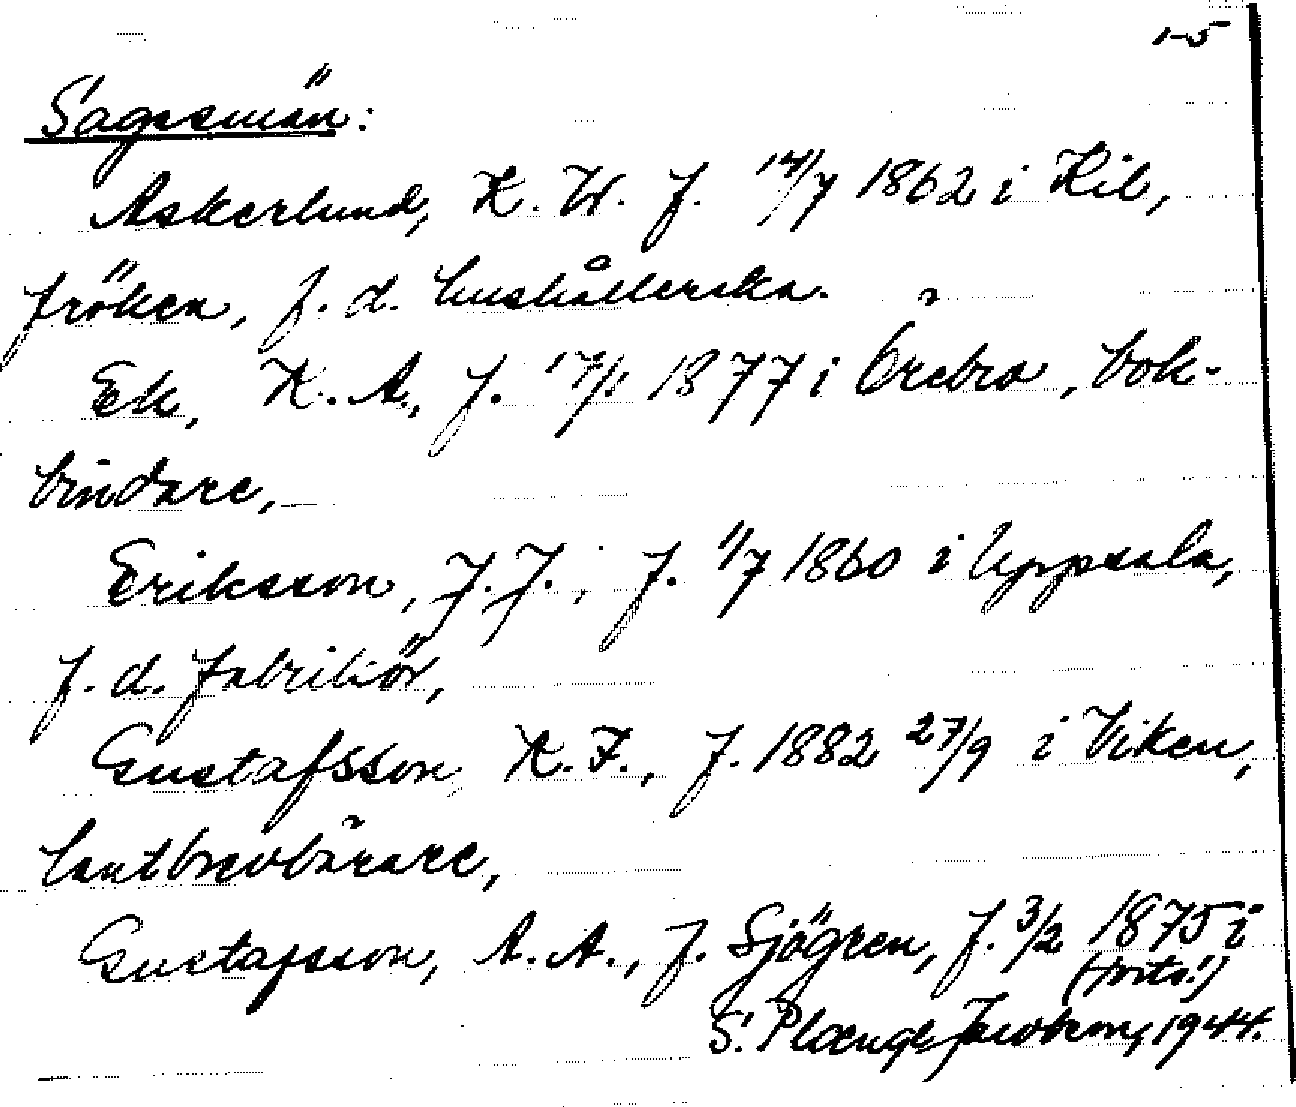 1-5
Sagesmän:
Askerlund, K. W. f. 14/7 1862 i Kil,
fröken, f. d. hushållerska.
Ek, K. A., f. 17/1 1877 i Örebro, bok-
bindare,
Eriksson, J. J., f. 1/7 1860 i Uppsala,
f. d. fabrikör,
Gustafsson, K. F., f. 1882 27/9 i Viken,
lantbrevbärare,
Gustafsson, A. A., f. Sjögren, f. 3/2 1875 i
(forts!)
S. Plænge Jacobson, 1944.